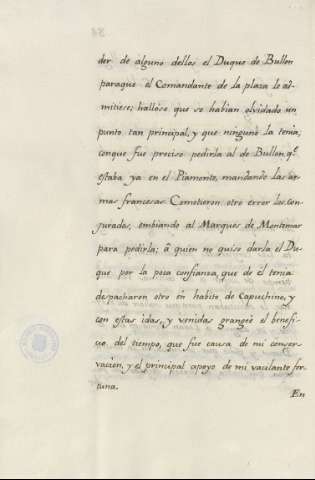 der de alguno dellos el Duque de Bullon
paraque el Comandante de la plaza lo ad-
mitiese; hallose que se habian olvidado un
punto tan principal, y que ninguno la tenia,
conque fue preciso pedirla al de Bullon, q.e
estaba ya en el Piamonte, mandando las ar-
mas francesas. Cometieron otro error los con-
jurados, embiando al Marques de Montemar
para pedirla; á quien no quiso darla el Du-
que por la poca confianza, que de el tenia
despacharon otro en habito de Capuchino, y
con estas idas, y venidas grangeó el benefi-
cio del tiempo, que fue causa de mi conser-
vacion, y el principal apoyo de mi vacilante for-
tuna.
En